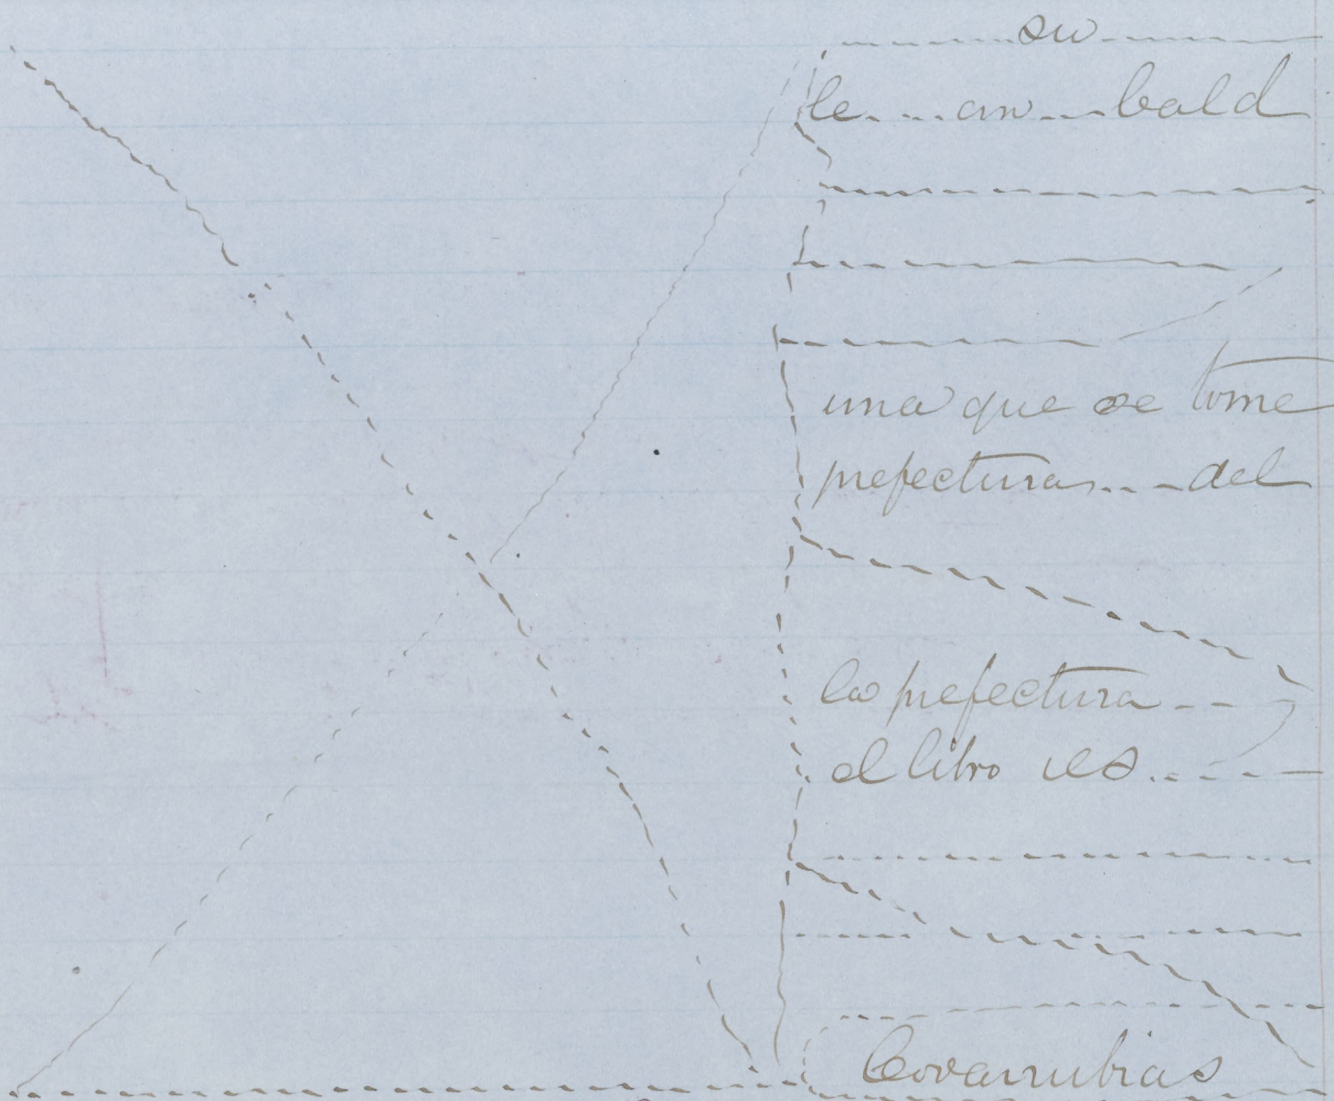 su
le....an....bald
una que se tome
prefectura...del
la prefectura --
el libro
Covarrubias